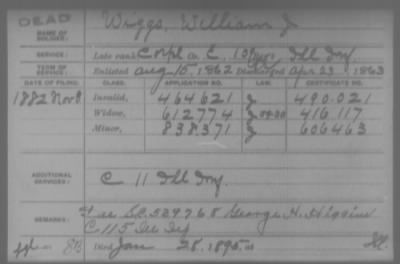 DEAD
NAME OF SOLDIER: Wiggs, William J
SERVICE: Late rank Corpl Co. E, 13 Ill Inf.
TERM OF SERVICE: Enlisted Aug 15, 1862 Discharged Apr 23, 1863
DATE OF FILING. CLASS. APPLICATION NO. LAW. CERTIFICATE NO.
1882 Nov 8 Invalid, 464621 490.021
Widow, 612774 416.117
Minor, 838371 606463
ADDITIONAL SERVICES: C 11 Ill Inf.
REMARKS: S.C. 529768 George H. Higgins
C 115 Ill Inf
Died Jan 28, 1895, at Ill.